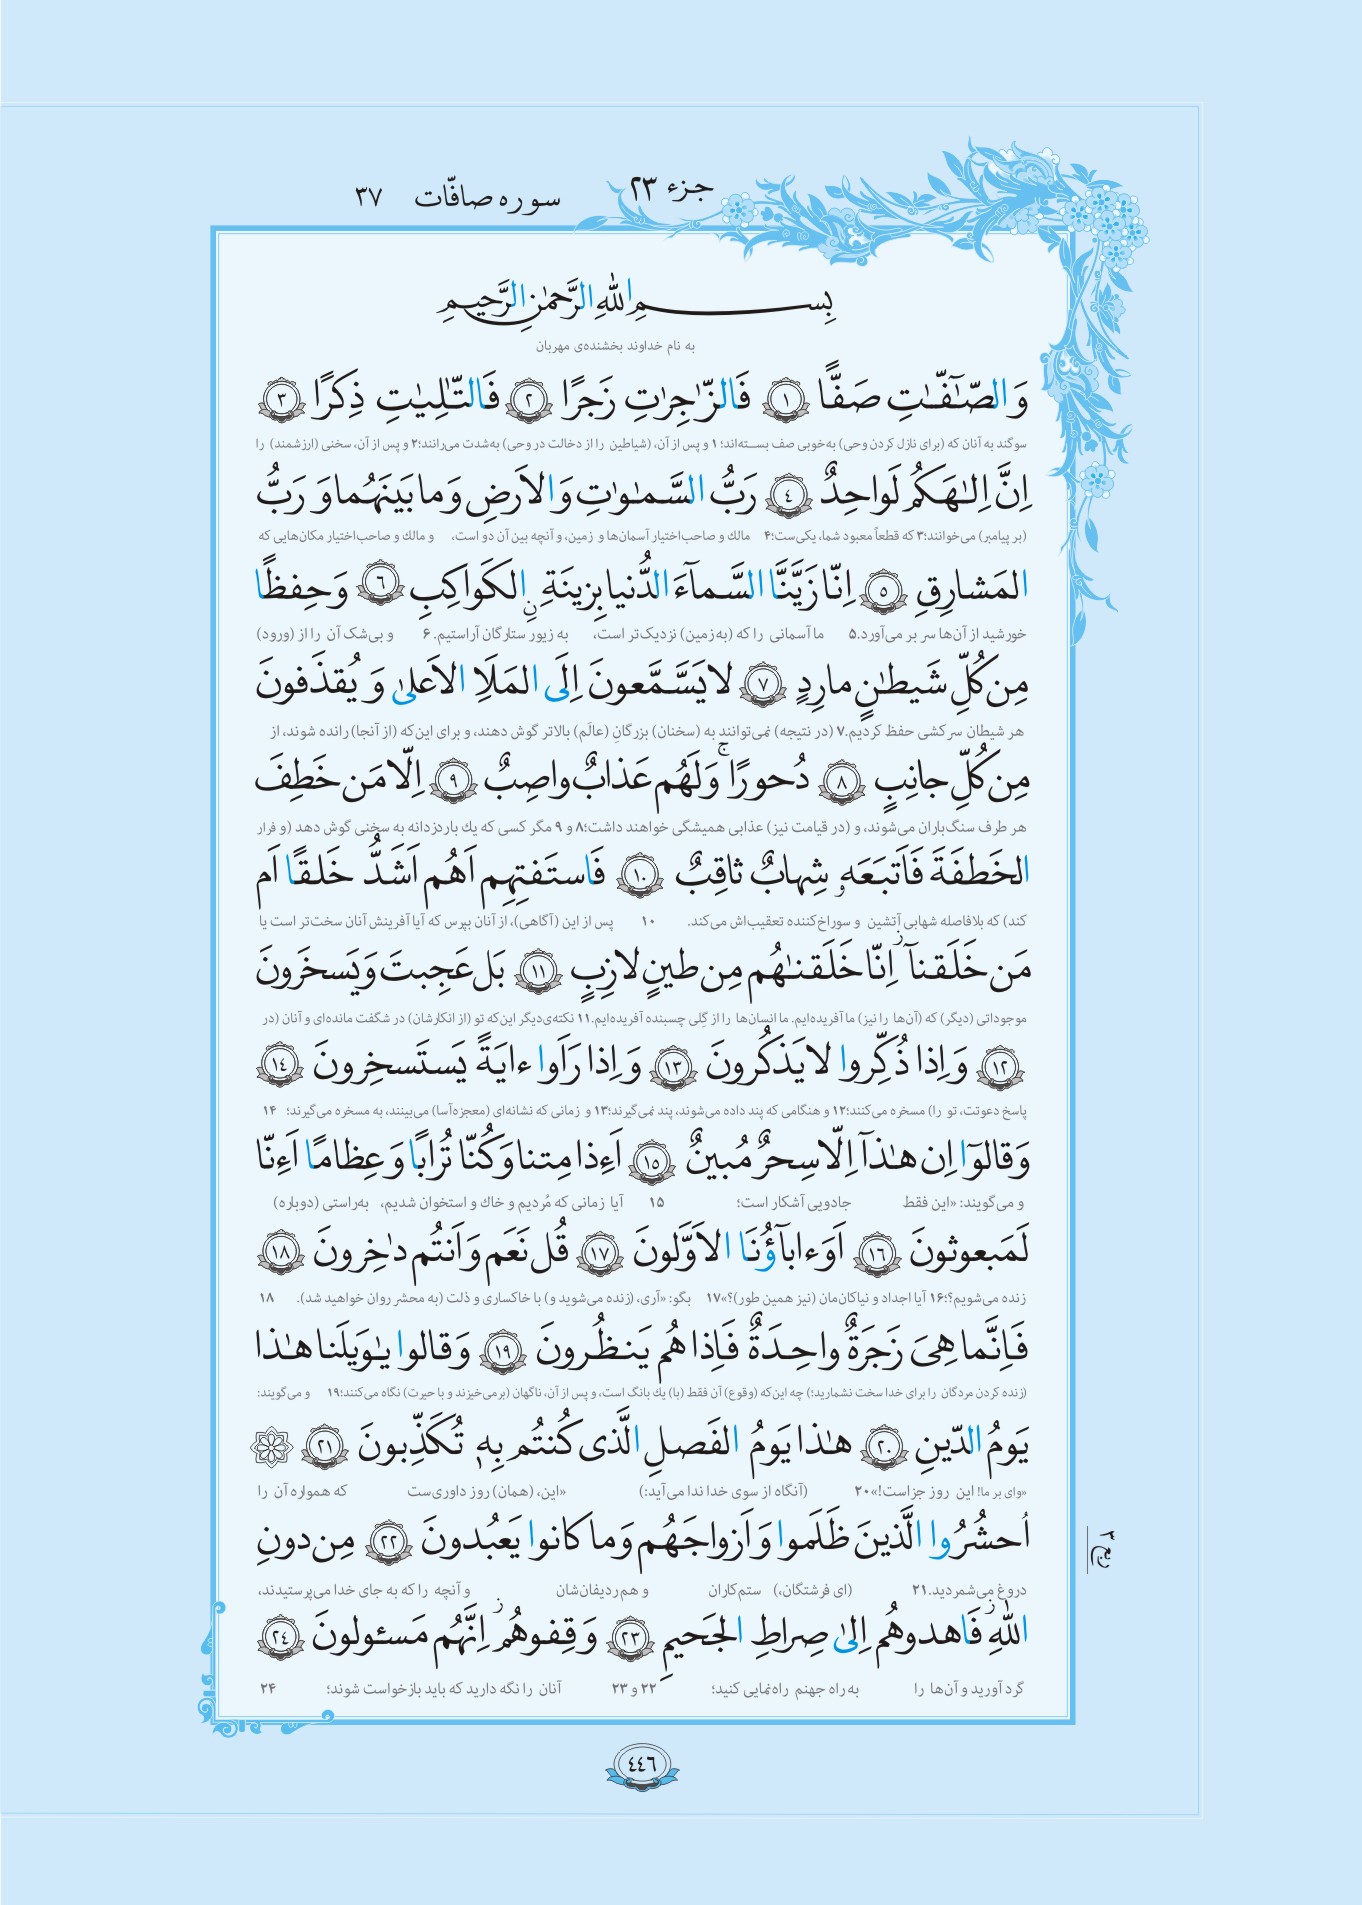 جزء ۲۳
سوره صافّات ۳۷
بِسمِ اللّٰهِ الرَّحمٰنِ الرَّحيمِ
به نام خداوند بخشنده‌ی مهربان
وَالصّٰٓفّٰتِ صَفًّا ﴿١﴾ فَالزّٰجِرٰتِ زَجرًا ﴿٢﴾ فَالتّٰلِيٰتِ ذِكرًا ﴿٣﴾
سوگند به آنان که (برای نازل کردن وحی) به‌خوبی صف بسته‌اند؛ ۱ و پس از آن، (شیاطین را از دخالت در وحی) به‌شدت می‌رانند؛ ۲ و پس از آن، سخنی (ارزشمند) را
اِنَّ اِلٰهَكُم لَواحِدٌ ﴿٤﴾ رَبُّ السَّمٰوٰتِ وَالاَرضِ وَما بَينَهُما وَ رَبُّ
(بر پیامبر) می‌خوانند؛ ۳ که قطعاً معبود شما، یکی‌ست؛ ۴ مالك و صاحب‌اختیار آسمان‌ها و زمین، و آنچه بین آن دو است، و مالك و صاحب‌اختیار مکان‌هایی که
المَشارِقِ ﴿٥﴾ اِنّا زَيَّنَّا السَّمآءَ الدُّنيا بِزينَةٍ نِ الكَواكِبِ ﴿٦﴾ وَ حِفظًا
خورشید از آن‌ها سر بر می‌آورد. ۵ ما آسمانی را که (به زمین) نزدیک‌تر است، به زیور ستارگان آراستیم. ۶ و بی‌شک آن را از (ورود)
مِن كُلِّ شَيطٰنٍ مارِدٍ ﴿٧﴾ لا يَسَّمَّعونَ اِلَى المَلَاِ الاَعلىٰ وَ يُقذَفونَ
هر شیطان سرکشی حفظ کردیم. ۷ (در نتیجه) نمی‌توانند به (سخنان) بزرگانِ (عالَمِ) بالاتر گوش دهند، و برای این‌که (از آنجا) رانده شوند، از
مِن كُلِّ جانِبٍ ﴿٨﴾ دُحورًا ۚ وَلَهُم عَذابٌ واصِبٌ ﴿٩﴾ اِلّا مَن خَطِفَ
هر طرف سنگ‌باران می‌شوند، و (در قیامت نیز) عذابی همیشگی خواهند داشت؛ ۸ و ۹ مگر کسی که یك بار دزدانه به سخنی گوش دهد (و فرار
الخَطفَةَ فَاَتبَعَهٗ شِهابٌ ثاقِبٌ ﴿١٠﴾ فَاستَفتِهِم اَهُم اَشَدُّ خَلقًا اَم
کند) که بلافاصله شهابی آتشین و سوراخ‌کننده تعقیب‌اش می‌کند. ۱۰ پس از این (آگاهی)، از آنان بپرس که آیا آفرینش آنان سخت‌تر است یا
مَن خَلَقنآ ز اِنّا خَلَقنٰهُم مِن طينٍ لازِبٍ ﴿١١﴾ بَل عَجِبتَ وَيَسخَرونَ
موجوداتی (دیگر) که (آن‌ها را نیز) ما آفریده‌ایم. ما انسان‌ها را از گِلی چسبنده آفریده‌ایم. ۱۱ نکته‌ی‌دیگر این‌که تو (از انکارشان) در شگفت مانده‌ای و آنان (در
﴿١٢﴾ وَ اِذا ذُكِّروا لا يَذكُرونَ ﴿١٣﴾ وَ اِذا رَاَوا ءايَةً يَستَسخِرونَ ﴿١٤﴾
پاسخ دعوتت، تو را) مسخره می‌کنند؛ ۱۲ و هنگامی که پند داده می‌شوند، پند نمی‌گیرند؛ ۱۳ و زمانی که نشانه‌ای (معجزه‌آسا) می‌بینند، به مسخره می‌گیرند؛ ۱۴
وَقالوٓا اِن هٰذآ اِلّا سِحرٌ مُبينٌ ﴿١٥﴾ اَءِذا مِتنا وَكُنّا تُرابًا وَ عِظامًا اَءِنّا
و می‌گویند: «این فقط جادویی آشکار است؛ ۱۵ آیا زمانی که مُردیم و خاك و استخوان شدیم، به‌راستی (دوباره)
لَمَبعوثونَ ﴿١٦﴾ اَوَ ءابآؤُنَا الاَوَّلونَ ﴿١٧﴾ قُل نَعَم وَ اَنتُم دٰخِرونَ ﴿١٨﴾
زنده می‌شویم؟! ۱۶ آیا اجداد و نیاکان‌مان (نیز همین طور)؟» ۱۷ بگو: «آری، (زنده می‌شوید و) با خاکساری و ذلت (به محشر روان خواهید شد). ۱۸
فَاِنَّما هِىَ زَجرَةٌ واحِدَةٌ فَاِذا هُم يَنظُرونَ ﴿١٩﴾ وَ قالوا يٰوَيلَنا هٰذا
(زنده کردن مردگان را برای خدا سخت نشمارید؛) چه این‌که (وقوع) آن فقط (با) یك بانگ است، و پس از آن، ناگهان (برمی‌خیزند و با حیرت) نگاه می‌کنند؛ ۱۹ و می‌گویند:
يَومُ الدّينِ ﴿٢٠﴾ هٰذا يَومُ الفَصلِ الَّذى كُنتُم بِهٖ تُكَذِّبونَ ﴿٢١﴾
«وای بر ما! این روز جزاست!» ۲۰ (آنگاه از سوی خدا ندا می‌آید:) «این، (همان) روز داوری‌ست که همواره آن را
اُحشُرُوا الَّذينَ ظَلَموا وَ اَزواجَهُم وَ ما كانوا يَعبُدونَ ﴿٢٢﴾ مِن دونِ
ربع ٣
دروغ می‌شمردید. ۲۱ (ای فرشتگان،) ستم‌کاران و هم‌ردیفان‌شان و آنچه را که به جای خدا می‌پرستیدند،
اللّٰهِ ز فَاهدوهُم اِلىٰ صِراطِ الجَحيمِ ﴿٢٣﴾ وَ قِفوهُم ز اِنَّهُم مَسئولونَ ﴿٢٤﴾
گرد آورید و آن‌ها را به راه جهنم راه‌نمایی کنید؛ ۲۲ و ۲۳ آنان را نگه دارید که باید بازخواست شوند؛ ۲۴
٤٤٦